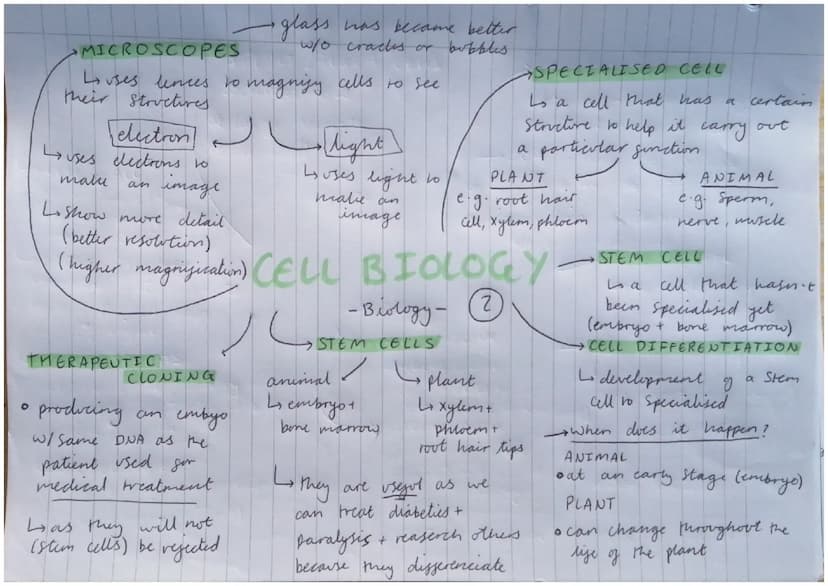 glass has became better
w/o cracks or bubbles
MICROSCOPES
↳ uses lences to magnify cells to see
their structures
electron
↳ uses electrons to
make an image
↳ show more detail
(better resolution)
(higher magnification)
light
↳ uses light to
make an
image
SPECIALISED CELL
↳ a cell that has a certain
structure to help it carry out
a particular function
PLANT
e.g. root hair
cell, xylem, phloem
ANIMAL
e.g. sperm,
nerve, muscle
CELL BIOLOGY
- Biology -
2
STEM CELL
↳ a cell that hasn't
been specialised yet
(embryo + bone marrow)
CELL DIFFERENTIATION
↳ development of a stem
cell to specialised
→ when does it happen?
ANIMAL
• at an early stage (embryo)
PLANT
• can change throughout the
life of the plant
STEM CELLS
animal
↳ embryo +
bone marrow
plant
↳ xylem +
phloem +
root hair tips
↳ they are useful as we
can treat diabetics +
paralysis + reaserch others
because they differenciate
THERAPEUTIC
CLONING
• producing an embyo
w/ same DNA as the
patient used for
medical treatment
↳ as they will not
(stem cells) be rejected